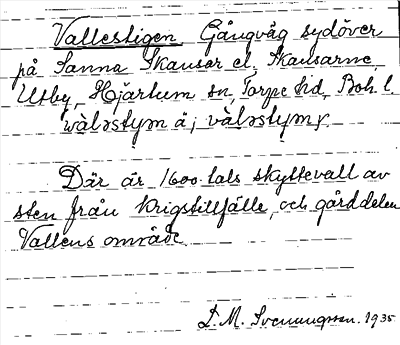 Vallestigen, Gångväg sydöver
på Sanna Skansar el. Skansarne,
Utby, Hjärtum sn, Torpe hd, Boh. l.
vàləstym ä; vàləstymṣ
Där är 1600-tals skyttevall av
sten från krigstillfälle, och gårddelen
Vallens område.
L. M. Svenungsson. 1935